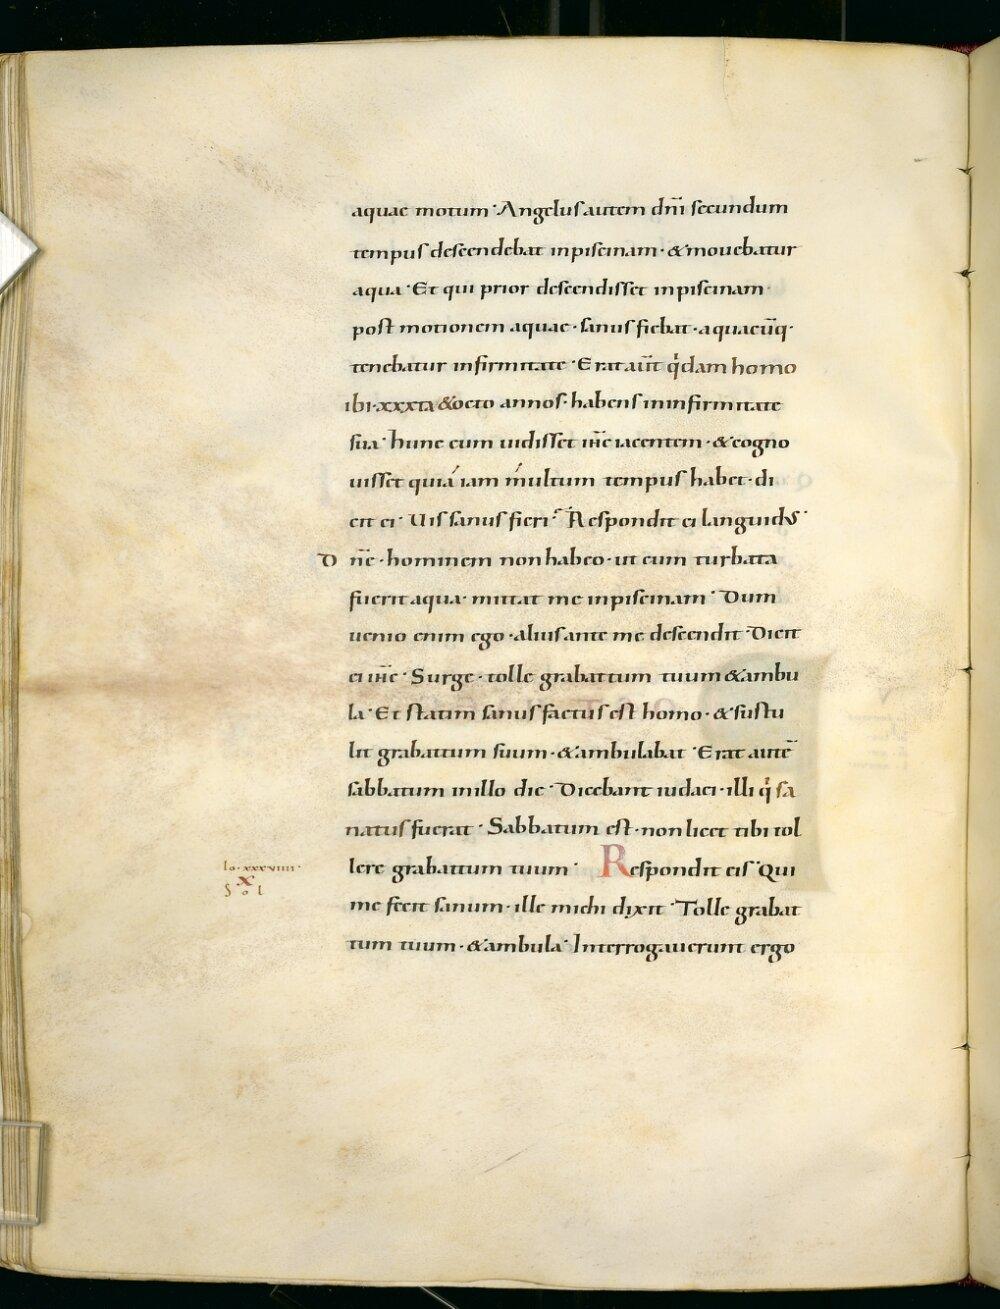 aquae motum · Angelus autem dn̄i secundum
tempus descendebat inpiscinam · & mouebatur
aqua · Et qui prior descendisset inpiscinam ·
post motionem aquae · sanus fiebat · aquacūq ·
tenebatur infirmitate · Erat aūt q̇dam homo
ibi · xxxta & octo annos · habens ininfirmitate
sua · hunc cum uidisset ih̄c iacentem · & cogno
uisset quia iam multum tempus habet · di
cit ei · Uis sanus fieri · Respondit ei languidus ·
Dn̄e · hominem non habeo · ut cum turbata
fuerit aqua · mittat me inpiscinam · Dum
uenio enim ego · alius ante me descendit · Dicit
ei ih̄c · Surge · tolle grabattum tuum & ambu
la · Et statim sanus factus est homo · & sustu
lit grabattum suum · & ambulabat · Erat autē
sabbatum inillo die · Dicebant iudaei · illi q̇ sa
natus fuerat · Sabbatum est · non licet tibi tol
Io · xxxviiii ·
x
Sol
lere grabattum tuum · Respondit eis · Qui
me fecit sanum · ille michi dixit · Tolle grabat
tum tuum · & ambula · Interrogauerunt ergo